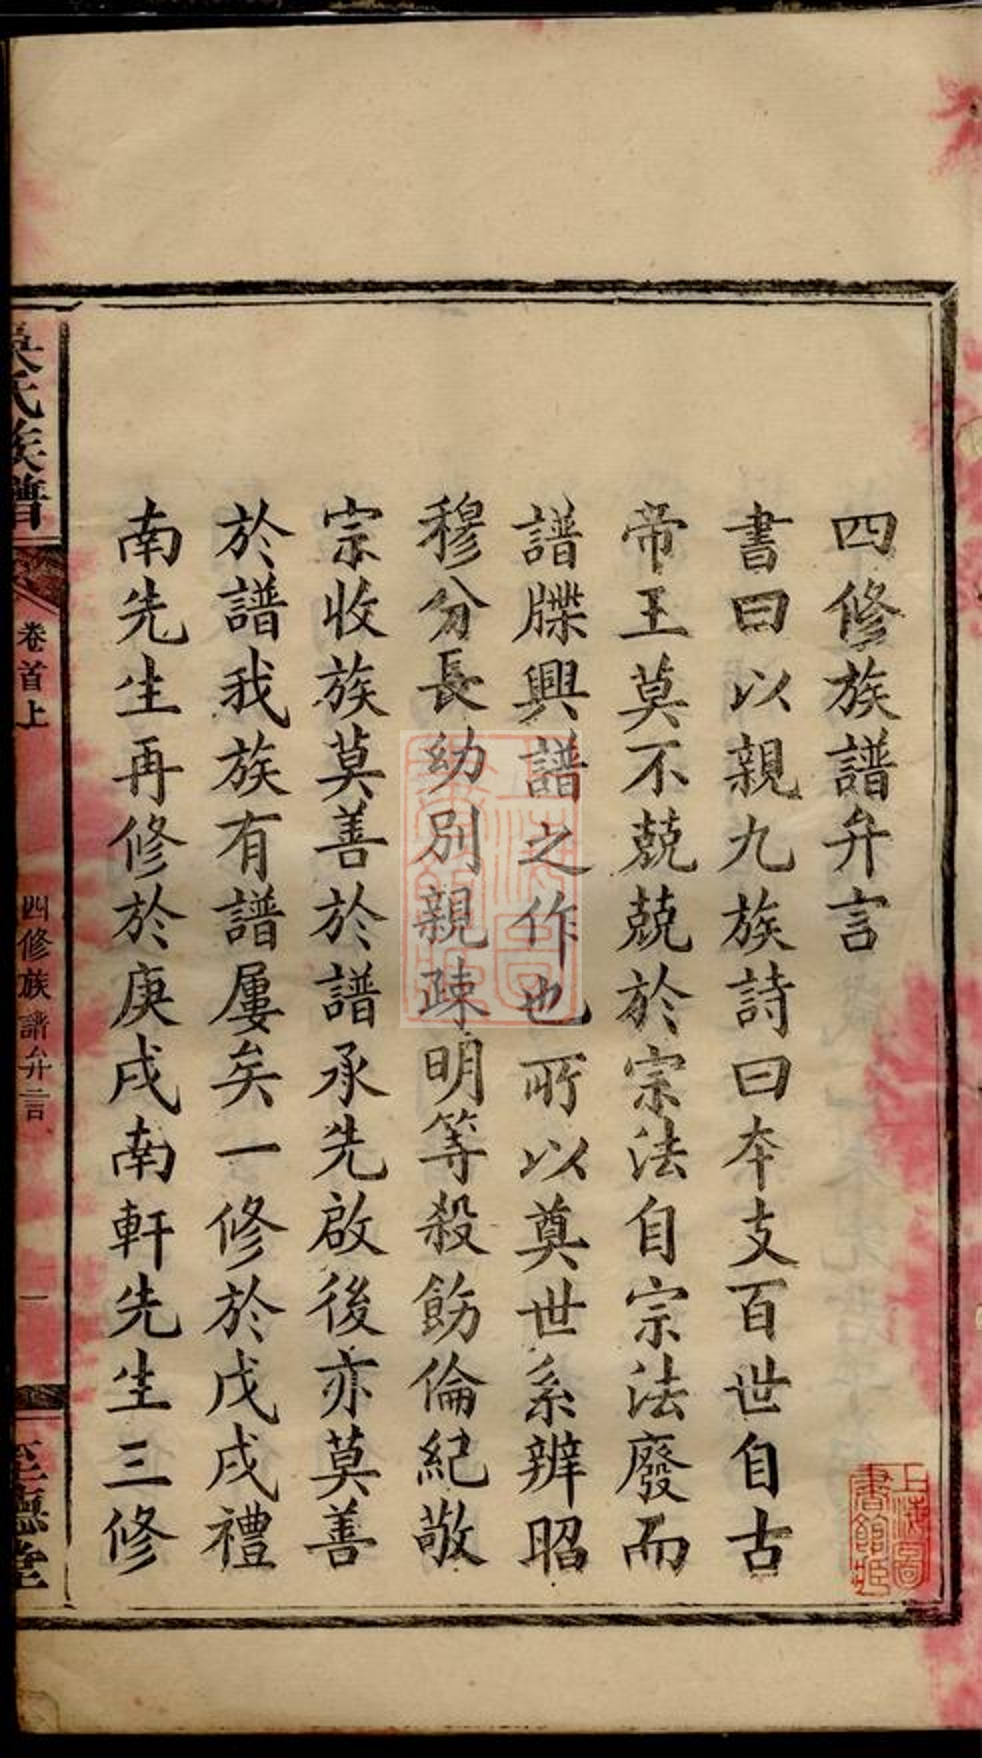 四修族譜弁言
書曰以親九族詩曰本支百世自古
帝王莫不兢兢於宗法自宗法廢而
譜牒興譜之作也所以奠世系辨昭
穆分長幼別親疎明等殺飭倫紀敬
宗收族莫善於譜承先啟後亦莫善
於譜我族有譜屢矣一修於戊戌禮
南先生再修於庚戌南軒先生三修
吳氏族譜
卷首上
四修族譜弁言
一
至德堂
上海圖
書館藏